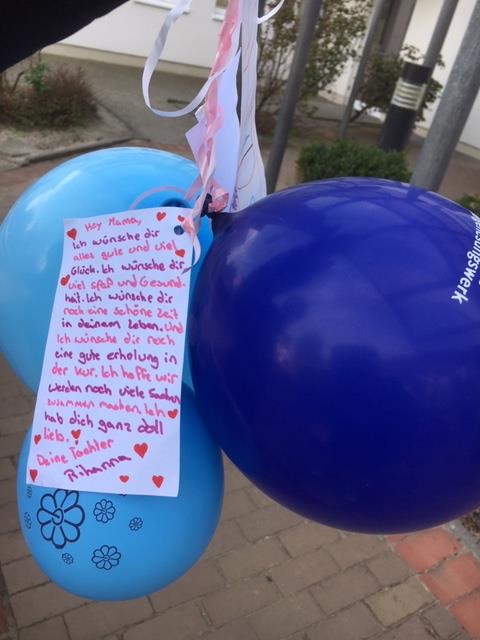 Hey Mama,
Ich wünsche dir
alles gute und viel
Glück. Ich wünsche dir
viel spaß und Gesund-
heit. Ich wünsche dir
noch eine schöne Zeit
in deinem Leben. Und
Ich wünsche dir noch
eine gute erholung in
der Kur. Ich hoffe wir
werden noch viele Sachen
zusammen machen. Ich
hab dich ganz doll
lieb.
Deine Tochter
Rihanna